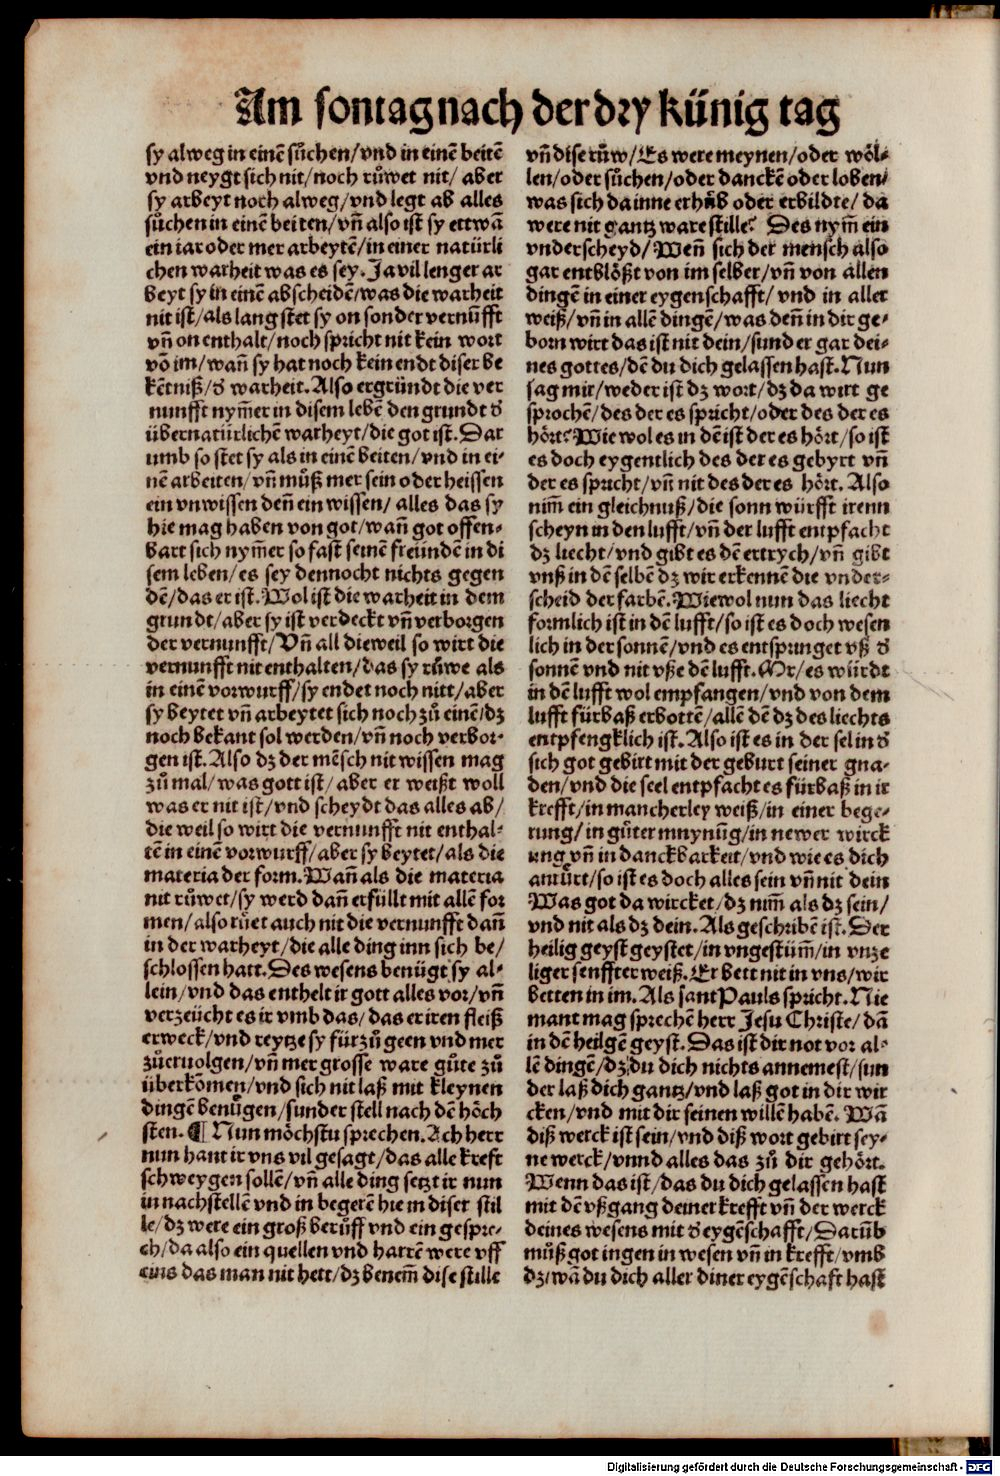 Am sontag nach der dry künig tag
sy alweg in einē sůchen/vnd in einē beitē
vnd neygt sich nit/noch růwet nit/ aber
sy arbeyt noch alweg/vnd legt ab alles
sůchen in einē beiten/vn̄ also ist sy ettwā
ein iar oder mer arbeytē/in einer natürli
chen warheit was es sey. Ja vil lenger ar
beyt sy in einē abscheidē/was die warheit
nit ist/als lang stet sy on sonder vernūfft
vn̄ on enthalt/noch spricht nit kein wort
vō im/wan̄ sy hat noch kein endt diser be
kētniß/d̕ warheit. Also ergründt die ver
nunfft nym̄er in disem lebē den grundt d̕
übernatürlichē warheyt/die got ist. Dar
umb so stet sy als in einē beiten/vnd in ei-
nē arbeiten/vn̄ můß mer sein oder heissen
ein vnwissen den̄ ein wissen/ alles das sy
hie mag haben von got/wan̄ got offen-
bart sich nym̄er so fast seinē freündē in di
sem leben/es sey dennocht nichts gegen
dē/das er ist. Wol ist die warheit in dem
grundt/aber sy ist verdeckt vn̄ verborgen
der vernunfft/Vn̄ all dieweil so wirt die
vernunfft nit enthalten/das sy růwe als
in einē vorwurff/sy endet noch nitt/aber
sy beytet vn̄ arbeytet sich noch zů einē/dz
noch bekant sol werden/vn̄ noch verbor-
gen ist. Also dz der mēsch nit wissen mag
zů mal/was gott ist/ aber er weißt woll
was er nit ist/vnd scheydt das alles ab/
die weil so wirt die vernunfft nit enthal-
tē in einē vorwurff/aber sy beytet/als die
materia der form. Wan̄ als die materia
nit růwet/sy werd dan̄ erfüllt mit allē for
men/also růet auch nit die vernunfft dan̄
in der warheyt/die alle ding inn sich be/
schlossen hatt. Des wesens benügt sy al-
lein/vnd das enthelt ir gott alles vor/vn̄
verzeücht es ir vmb das/das er iren fleiß
erweck/vnd reytze sy für zů geen vnd mer
zůeruolgen/vn̄ mer grosse ware gůte zů
überkōmen/vnd sich nit laß mit kleynen
dingē benügen/sunder stell nach dē hōch
sten. ¶ Nun mōchstu sprechen. Ach herr
nun hant ir vns vil gesagt/das alle kreft
schweygen sollē/vn̄ alle ding setzt ir nun
in nachstellē vnd in begerē hie in diser stil
le/dz were ein groß berůff vnd ein gespre-
ch/da also ein quellen vnd harrē were vff
eins das man nit hett/dz benem̄ dise stille
vn̄ dise růw/Es were meynen/oder wöl-
len/oder sůchen/oder danckē oder loben/
was sich da inne erhůb oder erbildte/ da
were nit gantz ware stille? Des nym̄ ein
vnderscheyd/ Wen̄ sich der mensch also
gar entblößt von im selber/vn̄ von allen
dingē in einer eygenschafft/ vnd in aller
weiß/vn̄ in allē dingē/was den̄ in dir ge-
born wirt das ist nit dein/sunder gar dei-
nes gottes/dē du dich gelassen hast. Nun
sag mir/weder ist dz wort/dz da wirt ge
sprochē/des der es spricht/oder des der es
hört? Wie wol es in dē ist der es hört/so ist
es doch eygentlich des der es gebyrt vn̄
der es spricht/vn̄ nit des der es hört. Also
nim̄ ein gleichnuß/die sonn würfft irenn
scheyn in den lufft/vn̄ der lufft entpfacht
dz liecht/vnd gibt es dē ertrych/vn̄ gibt
vnß in dē selbē dz wir erkennē die vnder-
scheid der farbē. Wiewol nun das liecht
formlich ist in dē lufft/so ist es doch wesen
lich in der sonnē/vnd es entspringet vß d̕
sonnē vnd nit vße dē lufft. Mr/es würdt
in dē lufft wol empfangen/vnd von dem
lufft fürbaß erbottē/allē dē dz des liechts
entpfengklich ist. Also ist es in der sel in d̕
sich got gebirt mit der geburt seiner gna-
den/vnd die seel entpfacht es fürbaß in ir
krefft/in mancherley weiß/in einer bege-
rung/ in gůter mnynūg/in newer wirck
ung vn̄ in danckbarkeit/vnd wie es dich
anrürt/so ist es doch alles sein vn̄ nit dein
Was got da wircket/dz nim̄ als dz sein/
vnd nit als dz dein. Als geschribē ist. Der
heilig geyst geystet/in vngestüm̄/in vnze
liger senffter weiß. Er bett nit in vns/wir
betten in im. Als sant Pauls spricht. Nie
mant mag sprechē herr Jesu Christe/ dā
in dē heilgē geyst. Das ist dir not vor al-
lē dingē/dz du dich nichts annemest/sun
der laß dich gantz/vnd laß got in dir wir
cken/vnd mit dir seinen willē habē. Wā
diß werck ist sein/vnd diß wort gebirt sey-
ne werck/vnnd alles das zů dir gehört.
Wenn das ist/das du dich gelassen hast
mit dē vßgang deiner krefft vn̄ der werck
deines wesens mit d̕ eygēschafft/Darūb
můß got ingen in wesen vn̄ in krefft/vmb
dz/wā du dich aller diner eygēschaft hast
Digitalisierung gefördert durch die Deutsche Forschungsgemeinschaft - DFG